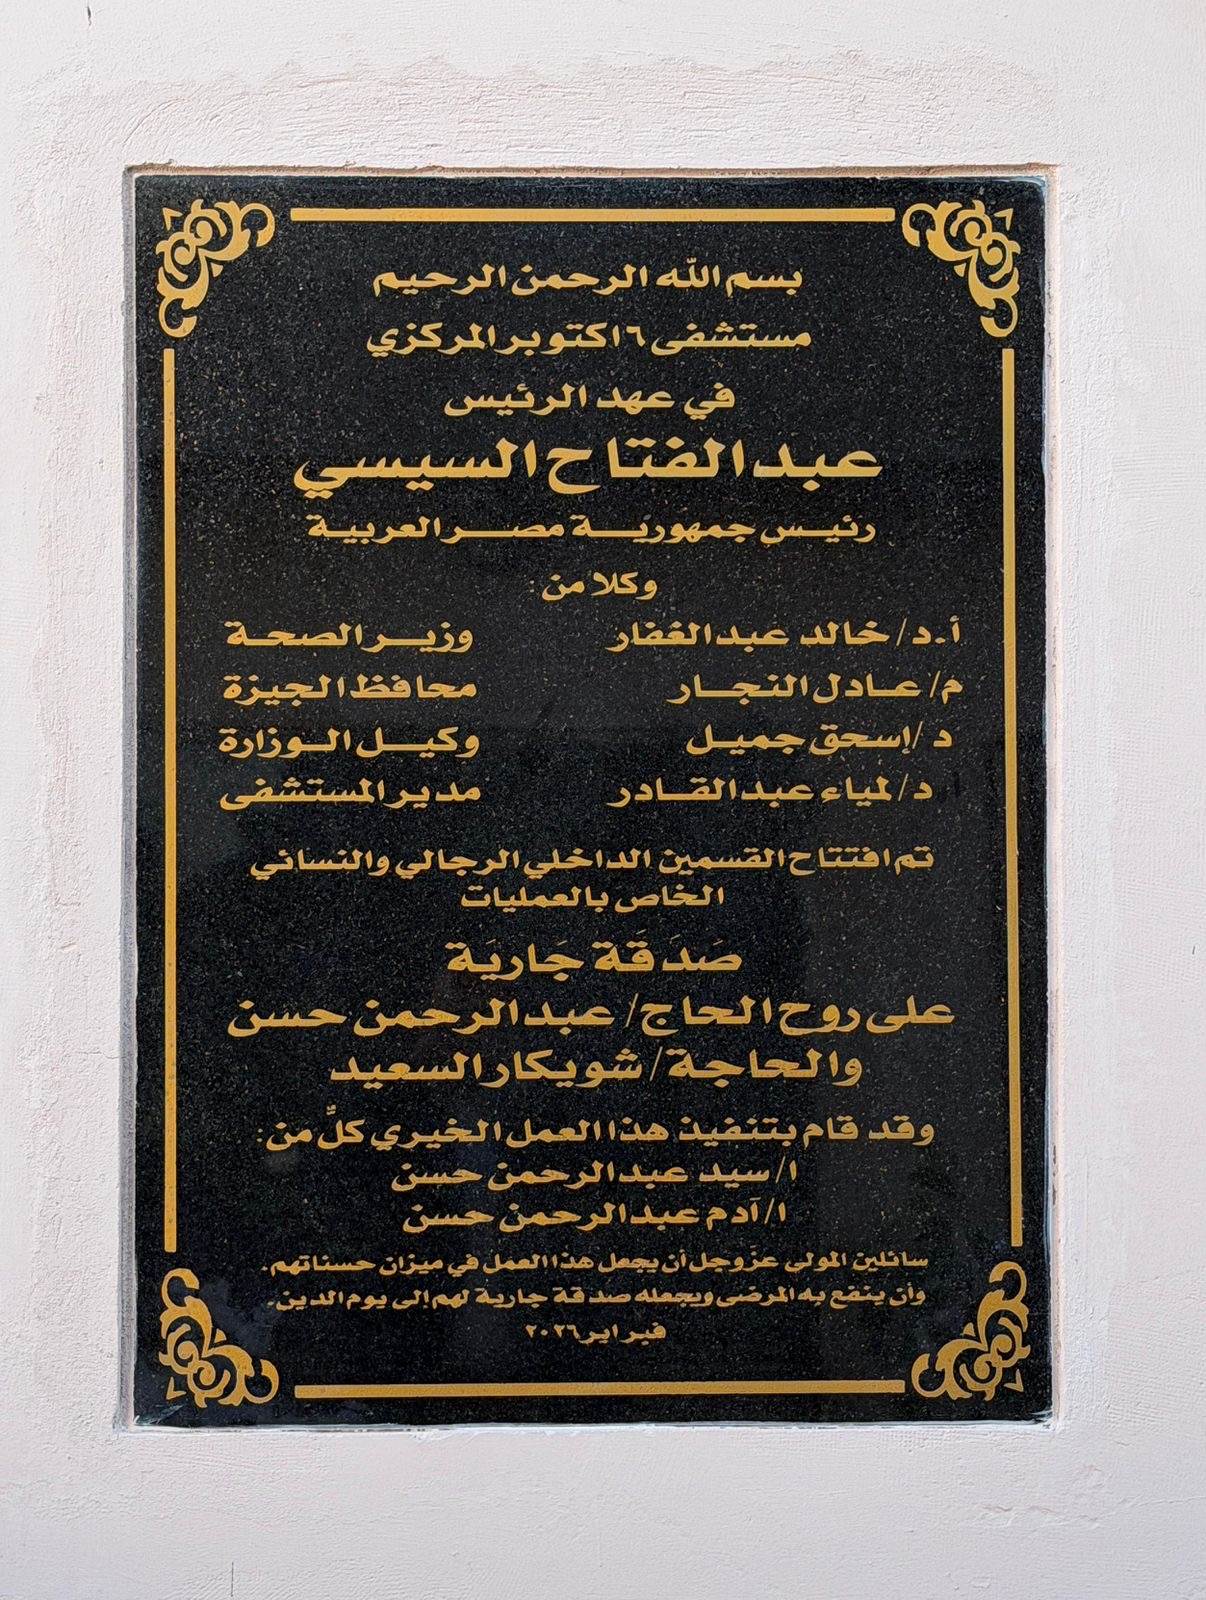 بسم الله الرحمن الرحيم
مستشفى ٦ اكتوبر المركزي
في عهد الرئيس
عبد الفتاح السيسي
رئيس جمهورية مصر العربية
وكلا من :
أ.د/ خالد عبد الغفار وزير الصحة
م/ عادل النجار محافظ الجيزة
د /إسحق جميل وكيل الوزارة
د/ لمياء عبد القادر مدير المستشفى
تم افتتاح القسمين الداخلي الرجالي والنسائي
الخاص بالعمليات
صَدَقَة جَاريَة
على روح الحاج/ عبد الرحمن حسن
والحاجة/ شويكار السعيد
وقد قام بتنفيذ هذا العمل الخيري كلٌ من :
ا/ سيد عبد الرحمن حسن
ا/ آدم عبد الرحمن حسن
سائلين المولى عزّ وجل أن يجعل هذا العمل في ميزان حسناتهم.
وأن ينفع به المرضى ويجعله صدقة جارية لهم إلى يوم الدين.
فبراير ٢٠٢٦